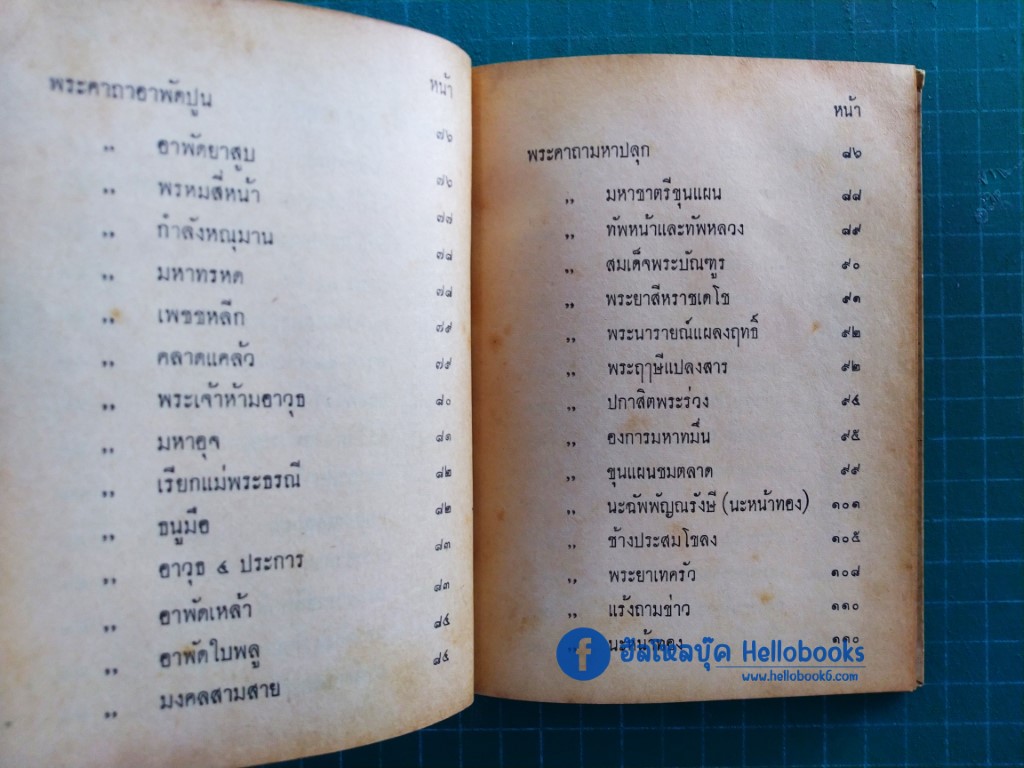 หน้า
พระคาถาอาพัดปูน ๗๖
,, อาพัดยาสูบ ๗๖
,, พรหมสี่หน้า ๗๗
,, กำลังหณุมาน ๗๘
,, มหาทรหด ๗๘
,, เพชชหลีก ๗๙
,, คลาดแคล้ว ๗๙
,, พระเจ้าห้ามอาวุธ ๘๐
,, มหาอุจ ๘๑
,, เรียกแม่พระธรณี ๘๒
,, ธนูมือ ๘๒
,, อาวุธ ๔ ประการ ๘๓
,, อาพัดเหล้า ๘๓
,, อาพัดใบพลู ๘๔
,, มงคลสามสาย ๘๕
หน้า
พระคาถามหาปลุก ๘๖
,, มหาชาตรีขุนแผน ๘๘
,, ทัพหน้าและทัพหลวง ๘๙
,, สมเด็จพระบัณฑูร ๙๐
,, พระยาสีหราชเดโช ๙๑
,, พระนารายณ์แผลงฤทธิ์ ๙๒
,, พระฤๅษีแปลงสาร ๙๒
,, ปกาสิตพระร่วง ๙๔
,, องการมหาทมึ่น ๙๕
,, ขุนแผนชมตลาด ๙๙
,, นะฉัพพัญณรังษี (นะหน้าทอง) ๑๐๑
,, ช้างประสมโขลง ๑๐๕
,, พระยาเทครัว ๑๐๘
,, แร้งถามข่าว ๑๑๐
,, นะหน้าทอง ๑๑๐
ฮัลโหลบุ๊ค Hellobooks
www.hellobook6.com